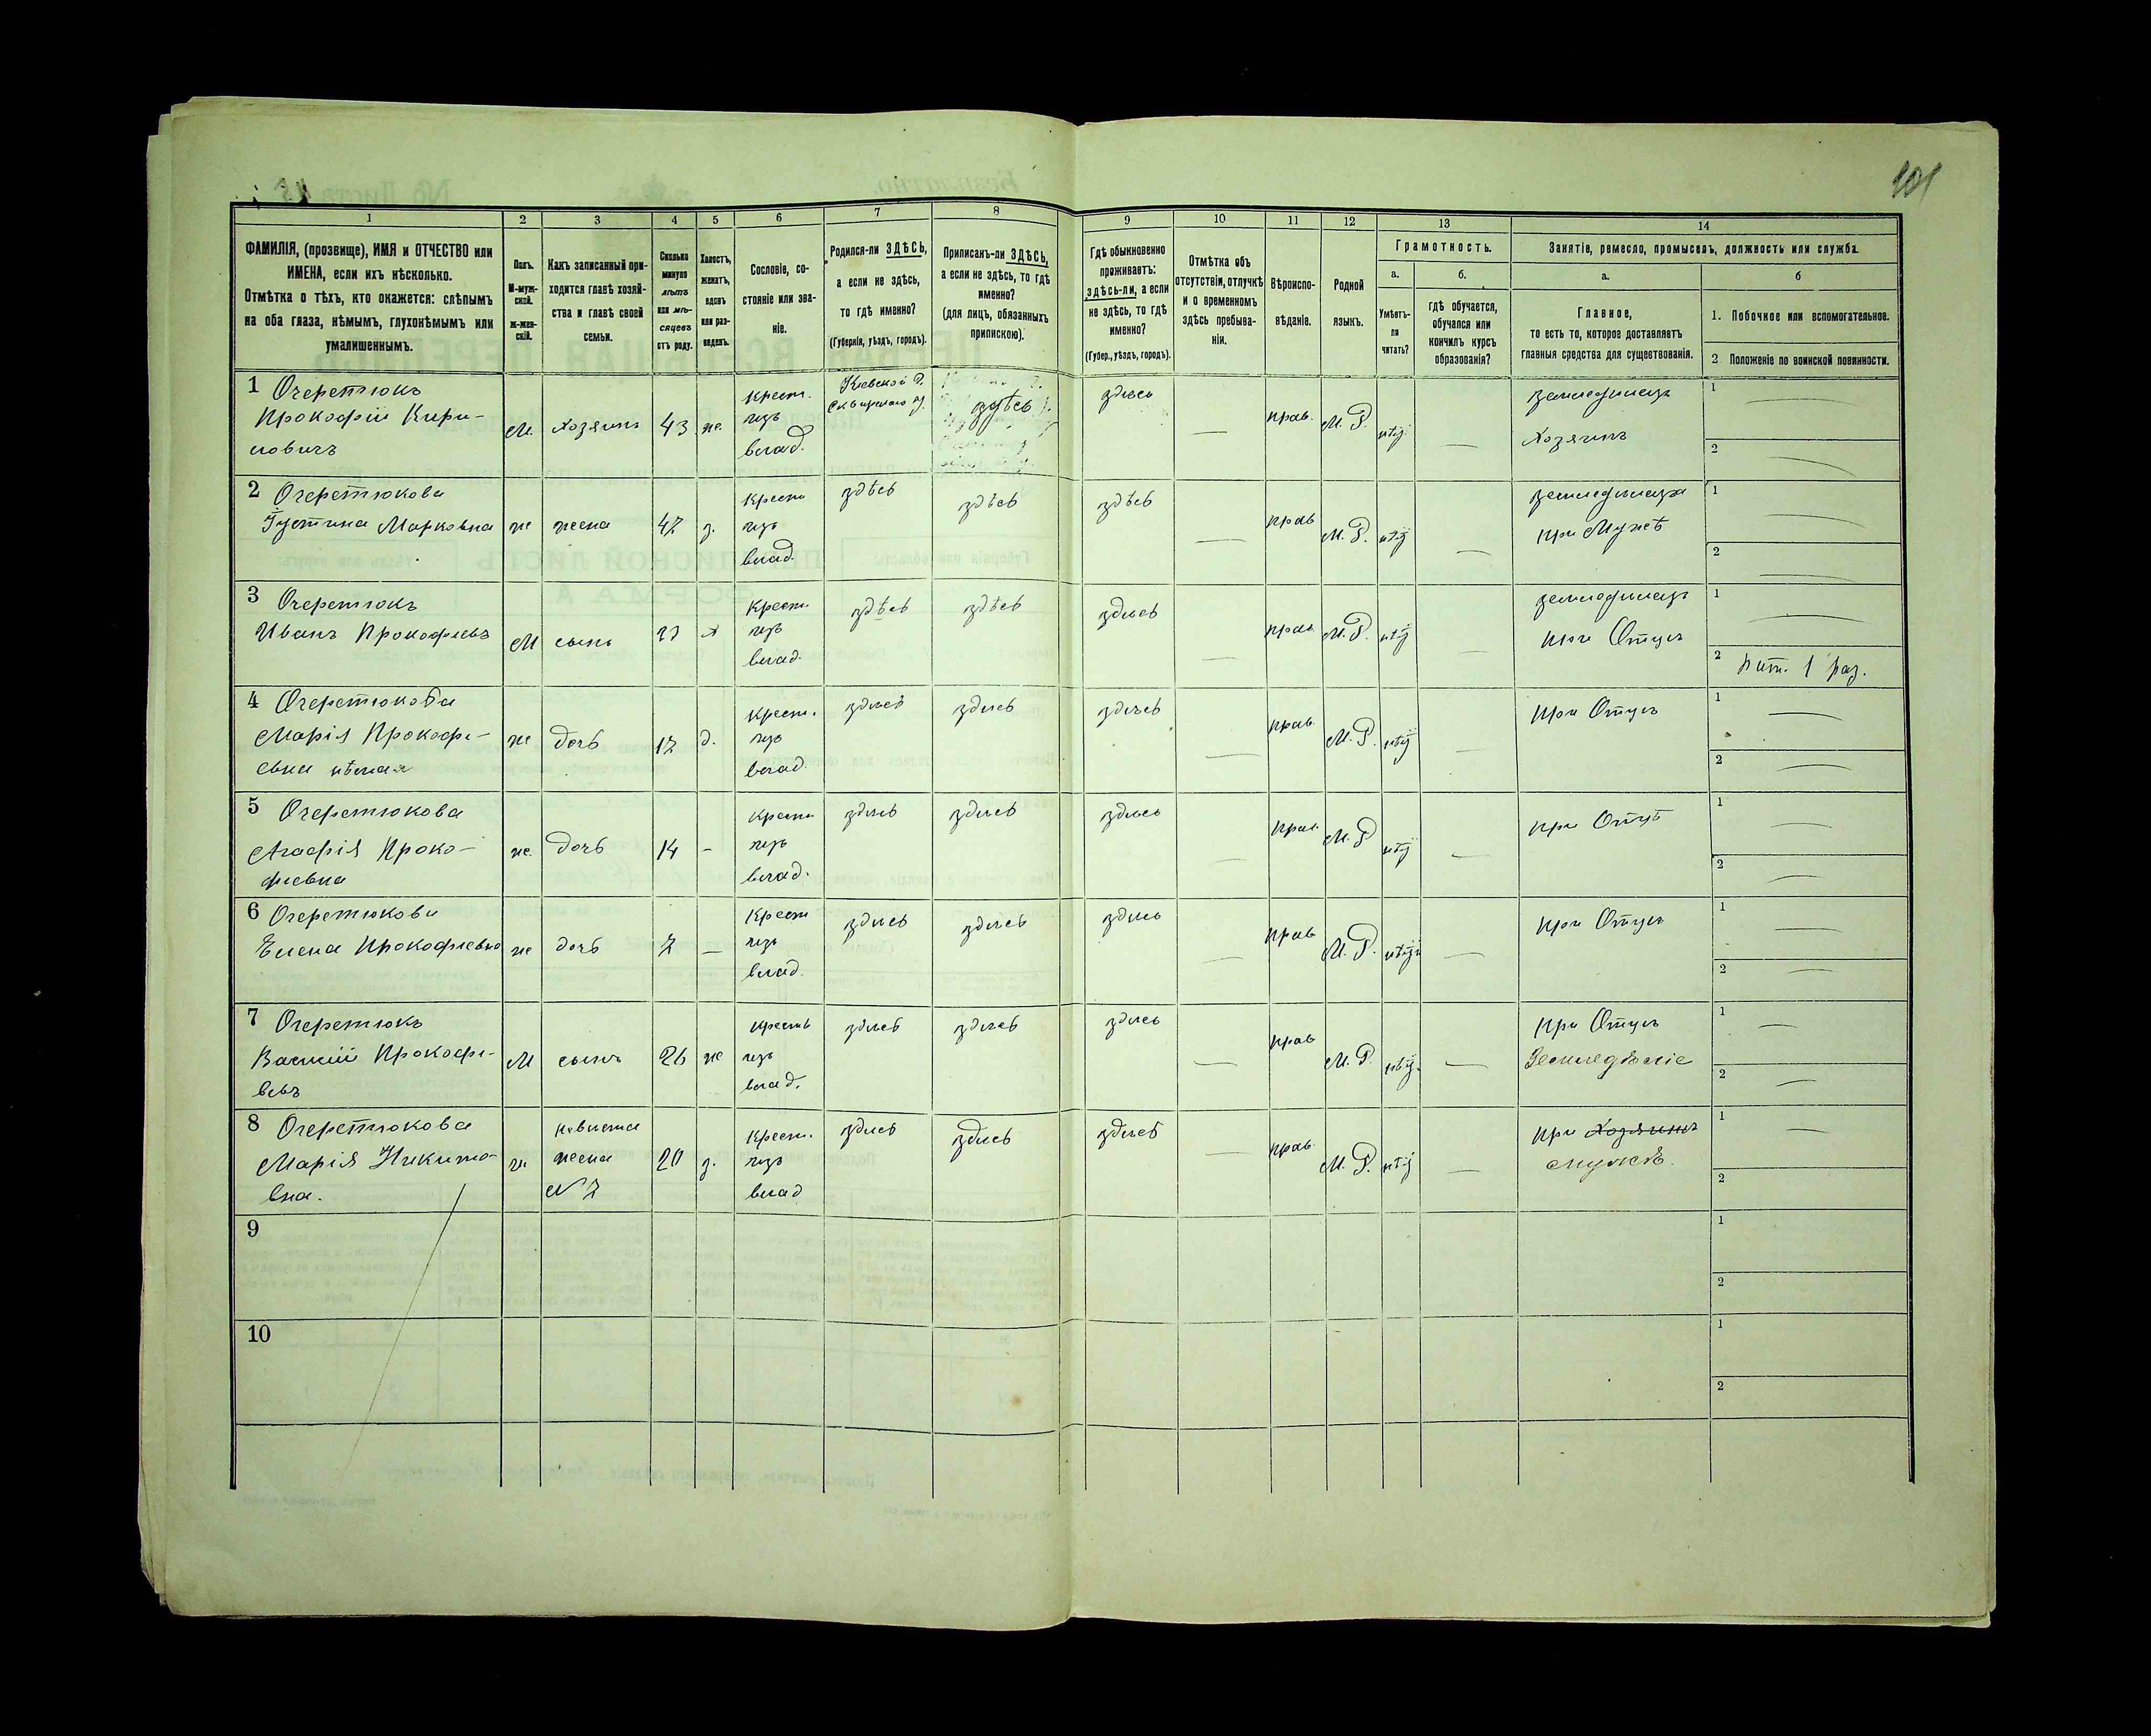 101
1 2 3 4 5 6 7 8 9 10 11 12 13 14
ФАМИЛІЯ, (прозвище), ИМЯ и ОТЧЕСТВО или
ИМЕНА, если ихъ нѣсколько.
Отмѣтка о тѣхъ, кто окажется: слѣпымъ
на оба глаза, нѣмымъ, глухонѣмымъ или
умалишеннымъ.
Полъ.
М-муж-
ской.
ж-жен-
скій.
Какъ записанный при-
ходится главѣ хозяй-
ства и главѣ своей
семьи.
Сколько
минуло
лѣтъ
или мѣ-
сяцевъ
отъ роду.
Холостъ,
женатъ,
вдовъ
или раз-
веденъ.
Сословіе, со-
стояніе или зва-
ніе.
Родился-ли ЗДѢСЬ,
а если не здѣсь,
то гдѣ именно?
(Губернія, уѣздъ, городъ).
Приписанъ-ли ЗДѢСЬ,
а если не здѣсь, то гдѣ
именно?
(для лицъ, обязанныхъ
припискою).
Гдѣ обыкновенно
проживаетъ:
здѣсь-ли, а если
не здѣсь, то гдѣ
именно?
(Губер., уѣздъ, городъ).
Отмѣтка объ
отсутствіи, отлучкѣ
и о временномъ
здѣсь пребыва-
ніи.
Вѣроиспо-
вѣданіе.
Родной
языкъ.
Грамотность.
а.
Умѣетъ-
ли
читать?
б.
гдѣ обучается,
обучался или
кончилъ курсъ
образованія?
Занятіе, ремесло, промыселъ, должность или служба.
а.
Главное,
то есть то, которое доставляетъ
главныя средства для существованія.
б
1. Побочное или вспомогательное.
2 Положеніе по воинской повинности.
1 Очеретюкъ
Прокофій Кири-
ловичъ
М. хозяинъ 43 же.
крест.
изъ
влад.
Кіевской г.
Сквирскаго у.
здѣсь
здѣсь
—
прав. М. Р. нѣтъ —
земледѣлецъ
хозяинъ
1 —
2 —
2 Очеретюкова
Іустина Марковна
же жена 47 з.
крест
изъ
влад.
здѣсь здѣсь здѣсь
—
прав М. Р. нѣтъ —
земледѣлецъ
при Мужѣ
1 —
2 —
3 Очеретюкъ
Иванъ Прокофіевъ
М сынъ 23 х
крест
изъ
влад.
здѣсь здѣсь здѣсь
—
прав. М. Р. нѣтъ —
земледѣлецъ
при Отцѣ
1 —
2 рат. 1 раз.
4 Очеретюкова
Марія Прокофі-
евна нѣмая
же дочь 17 д.
крест.
изъ
влад.
здѣсь здѣсь здѣсь
—
прав. М. Р. нѣтъ —
при Отцѣ
1 —
2 —
5 Очеретюкова
Агафія Проко-
фіевна
же. дочь 14 –
крест
изъ
влад.
здѣсь здѣсь здѣсь
—
прав. М. Р нѣтъ —
при Отцѣ
1 —
2 —
6 Очеретюкова
Елена Прокофіевна
же дочь 7 —
крест
изъ
влад.
здѣсь здѣсь здѣсь
—
прав М. Р. нѣтъ —
при Отцѣ
1 —
2 —
7 Очеретюкъ
Василій Прокофі-
евъ
М сынъ 26 же
крест
изъ
влад.
здѣсь здѣсь здѣсь
—
прав М. Р. нѣтъ. —
при Отцѣ
Земледѣліе
1 —
2 —
8 Очеретюкова
Марія Никито-
вна.
ж.
невѣстка
жена
№ 7
20 з.
крест.
изъ
влад
здѣсь здѣсь здѣсь
—
прав. М. Р. нѣтъ —
при хозяинѣ
мужѣ.
1 —
2
9
1
2
10
1
2